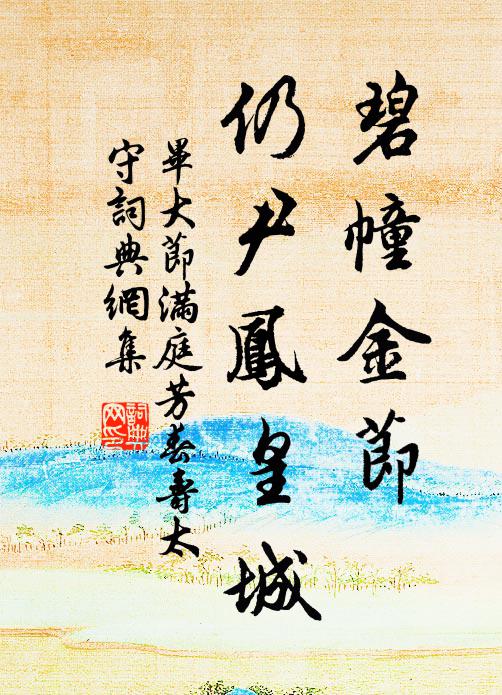 碧幢金節
仍尹鳳皇城
畢大節滿庭芳春壽太
守詞典網集
詞典網印